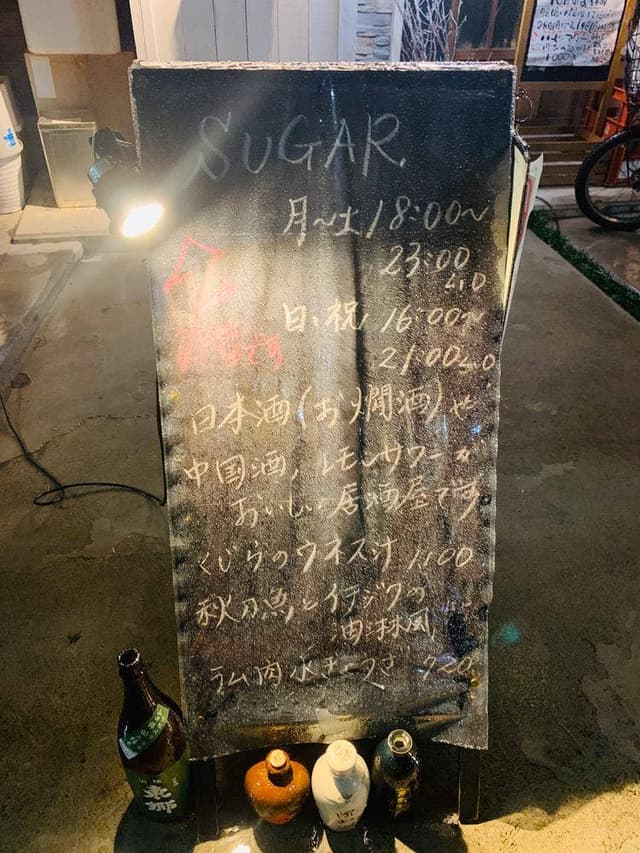 SUGAR.
月〜土 18:00〜
23:00
L.O
日、祝 16:00〜
21:00 L.O
日本酒(お燗酒)や
中国酒、レモンサワーが
おいしい居酒屋です
くじらのウネス汁 1,100
秋刀魚とイチジクの
油淋風
ラム肉水ぎょうざ 720
東郷